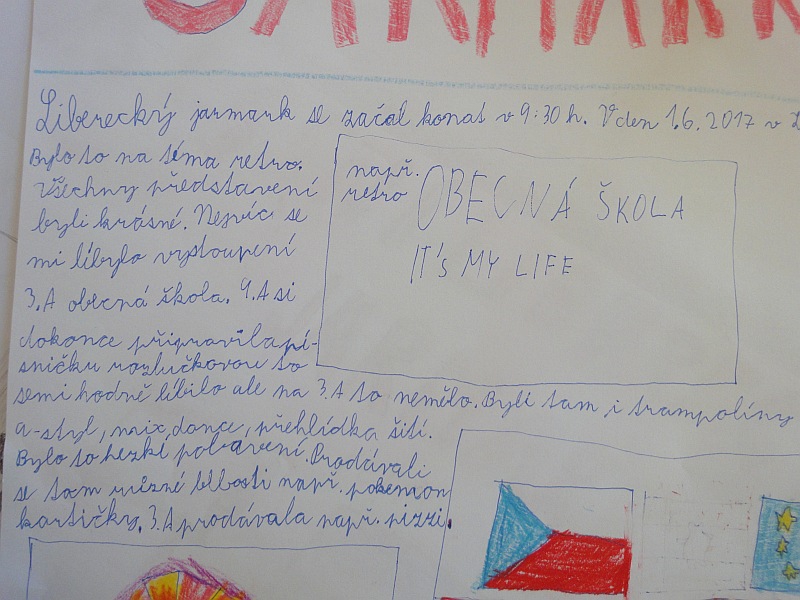 JARMARK
Liberecký jarmark se začal konat v 9:30 h. V den 1.6. 2017 v
Bylo to na téma retro.
Všechny představení
byli krásné. Nejvíc se
mi líbylo vystoupení
3.A obecná škola. 9.A si
dokonce připravila pí-
sničku rozlučkovou to
semi hodně líbilo ale na 3.A to nemělo. Byli tam i trampolíny
a-styl, mix dance, přehlídka šití.
Bylo to hezkí pobavení. Prodávali
se tam různé blbosti např. pokemon
kartičky. 3.A prodávala např. pizzi.
např.
retro
OBECNÁ ŠKOLA
IT'S MY LIFE